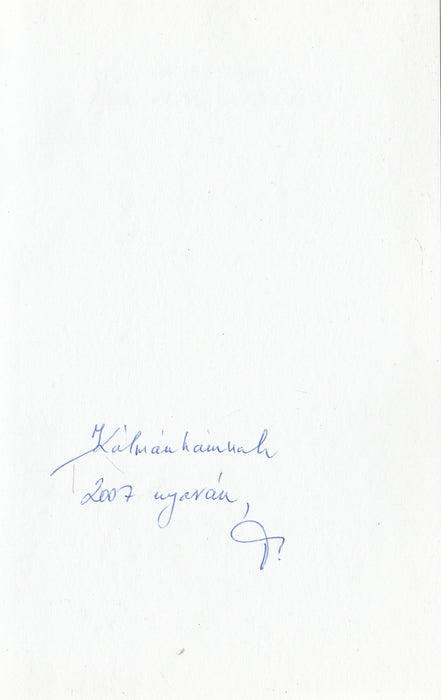 Kálmánkámnak
2007 nyarán,